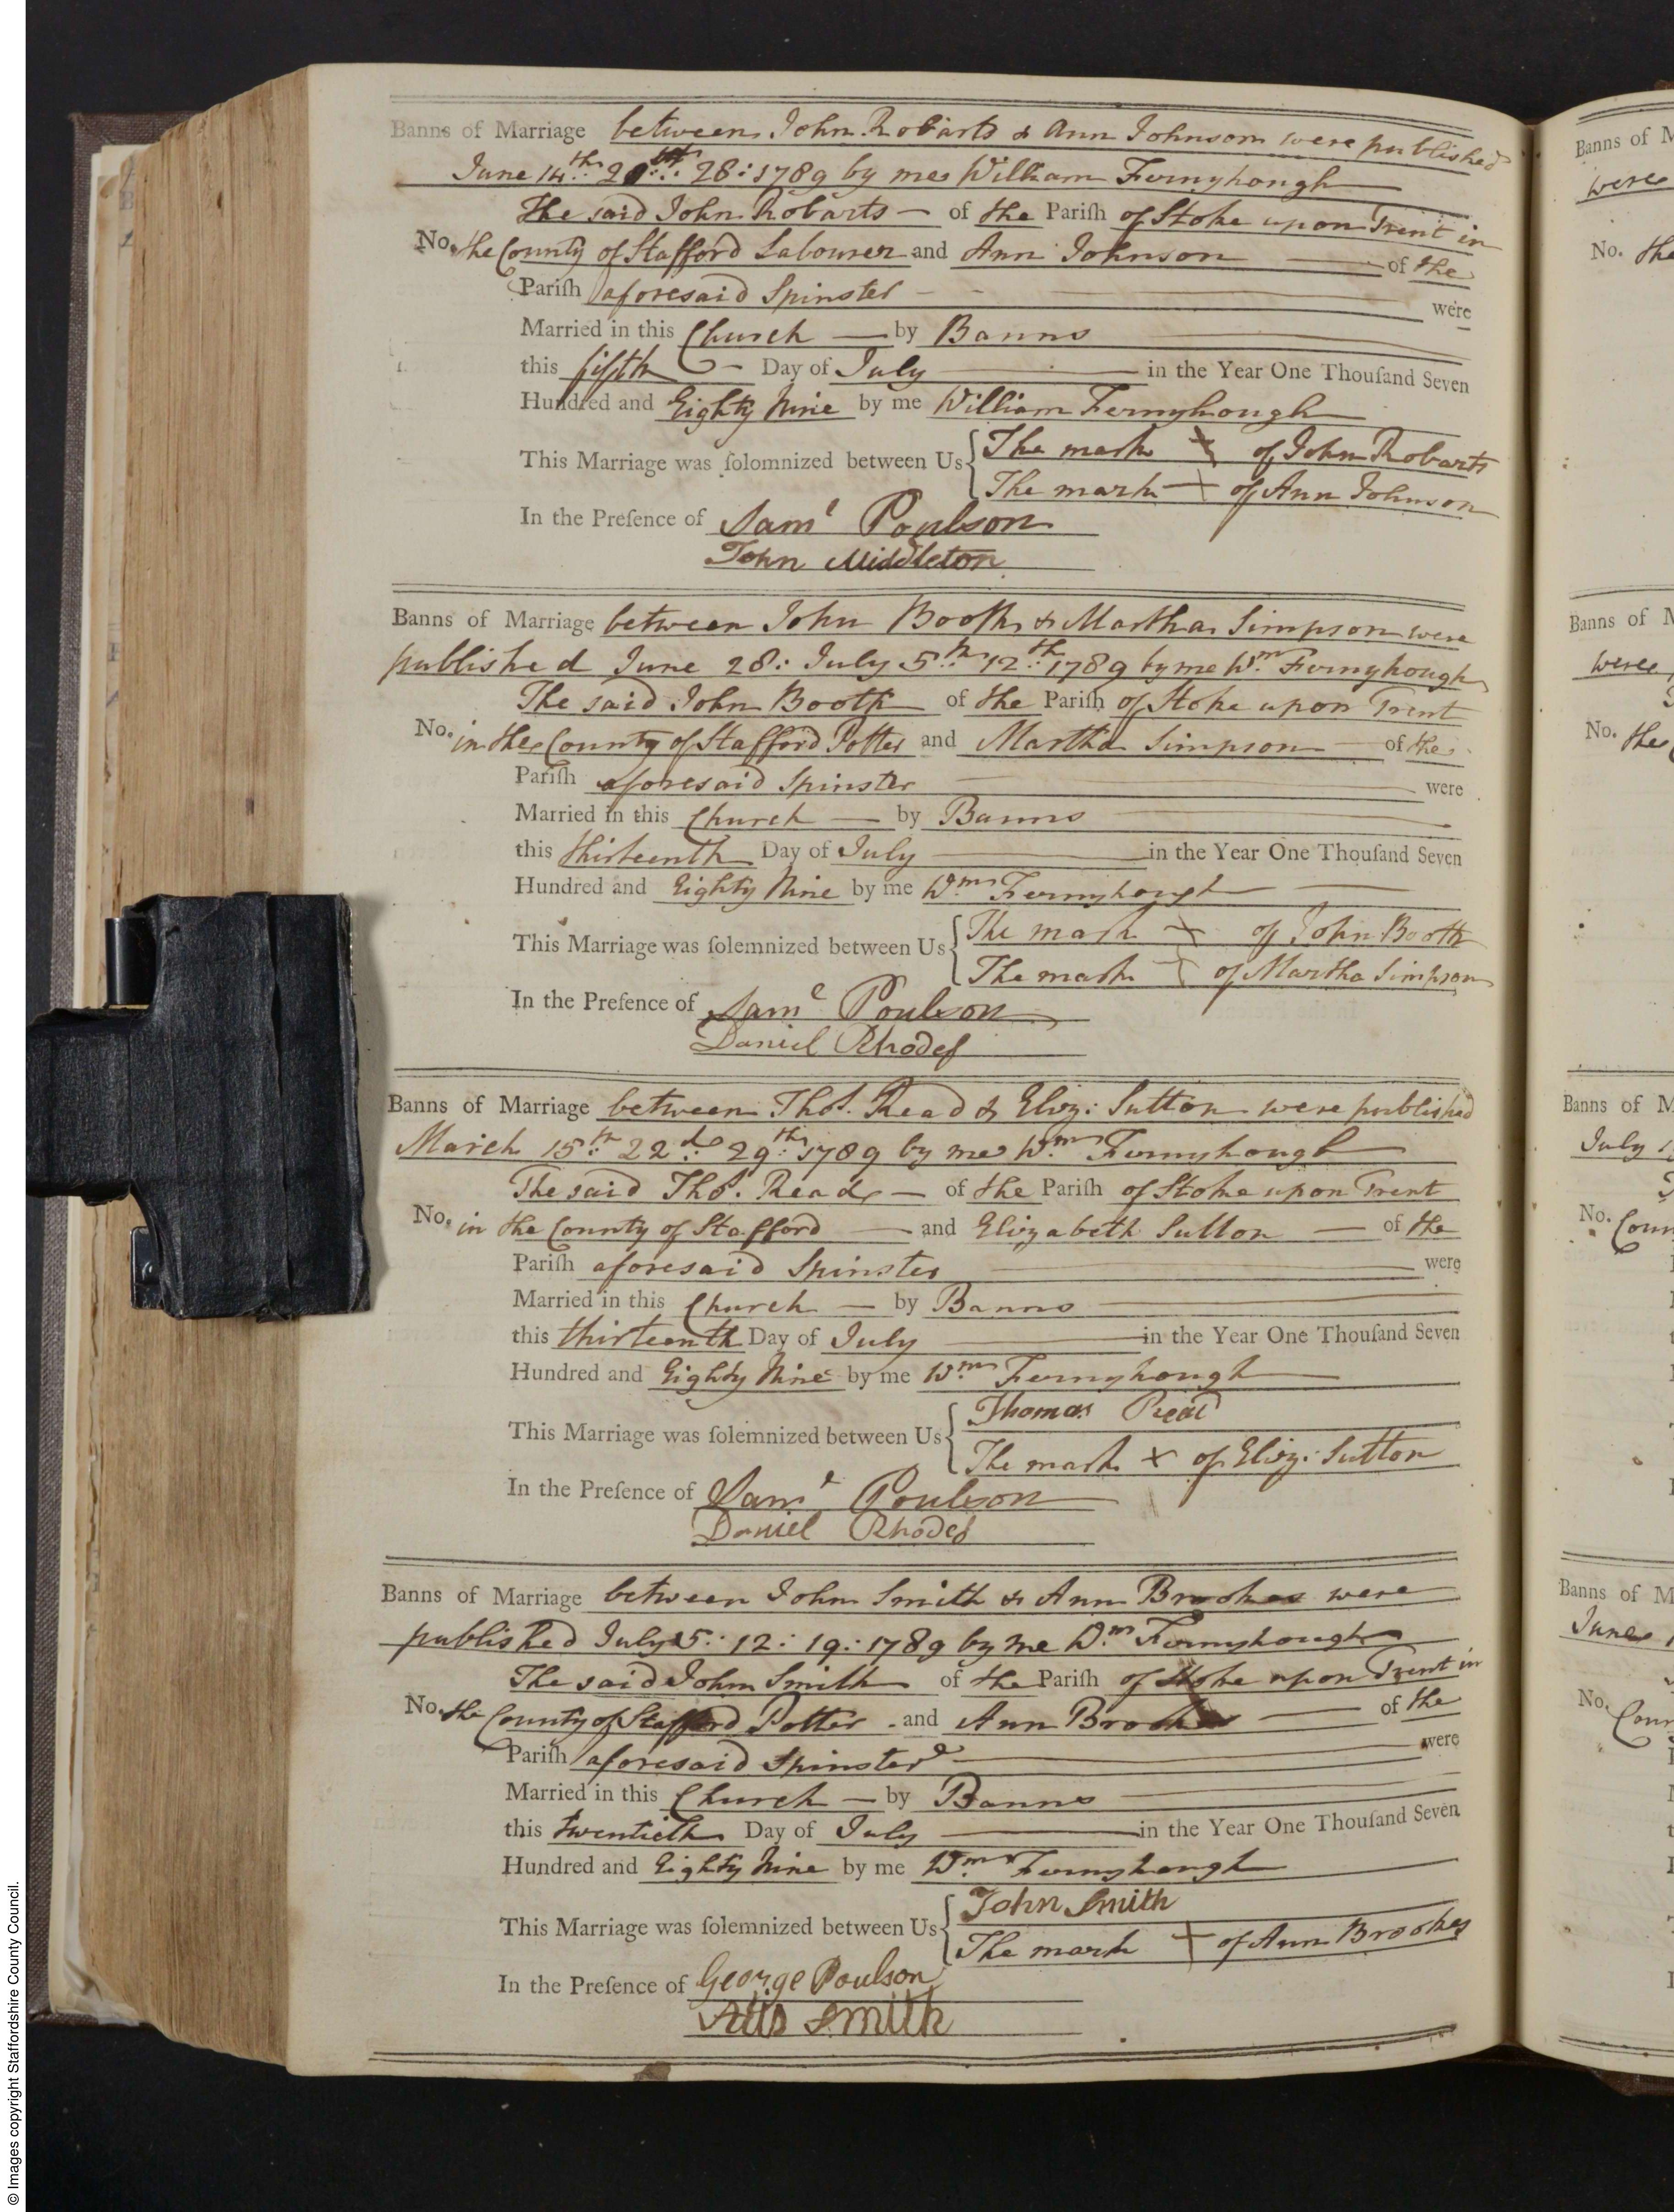 Banns of Marriage between John Robarts & Ann Johnson were published
June 14th 21st 28: 1789 by me William Fernyhough
The said John Robarts — of the Pariſh of Stoke upon Trent in
No. the County of Stafford Labourer and Ann Johnson — of the
Pariſh aforesaid Spinster — were
Married in this Church — by Banns
this fifth — Day of July — in the Year One Thouſand Seven
Hundred and Eighty Nine by me William Fernyhough
This Marriage was ſolomnized between Us { The mark X of John Robarts
The mark X of Ann Johnson
In the Preſence of Saml Poulson
John Middleton
Banns of Marriage between John Booth & Martha Simpson were
published June 28: July 5th 12th 1789 by me Wm Fernyhough
The said John Booth of the Pariſh of Stoke upon Trent
No. in the County of Stafford Potter and Martha Simpson — of the
Pariſh aforesaid Spinster — were
Married in this Church — by Banns
this thirteenth Day of July — in the Year One Thouſand Seven
Hundred and Eighty Nine by me Wm Fernyhough
This Marriage was ſolemnized between Us { The mark X of John Booth
The mark X of Martha Simpson
In the Preſence of Saml Poulson
Daniel Rhodes
Banns of Marriage between Thos. Read & Eliz: Sutton were published
March 15th 22d 29th 1789 by me Wm Fernyhough
The said Thos. Read — of the Pariſh of Stoke upon Trent
No. in the County of Stafford — and Elizabeth Sutton — of the
Pariſh aforesaid Spinster — were
Married in this Church — by Banns
this thirteenth Day of July — in the Year One Thouſand Seven
Hundred and Eighty Nine by me Wm Fernyhough
This Marriage was ſolemnized between Us { Thomas Read
The mark X of Eliz: Sutton
In the Preſence of Saml Poulson
Daniel Rhodes
Banns of Marriage between John Smith & Ann Brookes were
published July 5: 12: 19: 1789 by me Wm Fernyhough
The said John Smith of the Pariſh of Stoke upon Trent in
No. the County of Stafford Potter and Ann Brookes — of the
Pariſh aforesaid Spinster — were
Married in this Church — by Banns
this twentieth Day of July — in the Year One Thouſand Seven
Hundred and Eighty Nine by me Wm Fernyhough
This Marriage was ſolemnized between Us { John Smith
The mark X of Ann Brookes
In the Preſence of George Poulson
Smith
Banns of M
were
No. the
Banns of M
were
No. the
Banns of M
July
No. Coun
Banns of M
June
No. Coun
© Images copyright Staffordshire County Council.